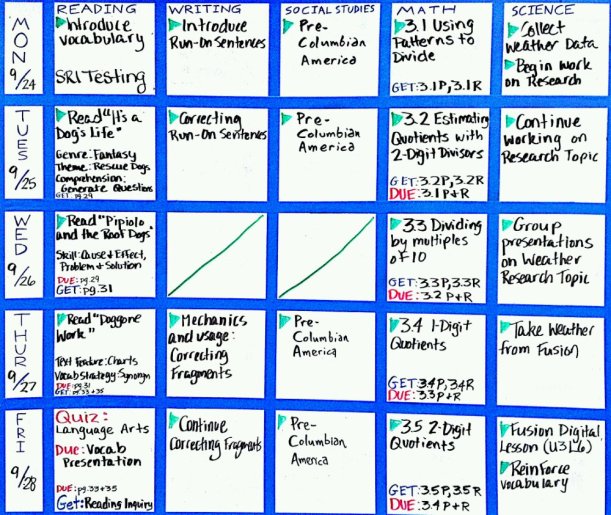 READING
WRITING
SOCIAL STUDIES
MATH
SCIENCE
MON
9/24
Introduce
vocabulary
SRI Testing
Introduce
Run-On Sentences
Pre-
Columbian
America
3.1 Using
Patterns to
Divide
GET: 3.1P, 3.1R
Collect
Weather Data
Begin work
on Research
TUES
9/25
Read "It's a
Dog's Life"
Genre: Fantasy
Theme: Rescue Dogs
Comprehension:
Generate Questions
GET: pg.29
Correcting
Run-On Sentences
Pre-
Columbian
America
3.2 Estimating
Quotients with
2-Digit Divisors
GET: 3.2P, 3.2R
DUE: 3.1 P+R
Continue
working on
Research Topic
WED
9/26
Read "Pipiolo
and the Roof Dogs"
Skill: Cause + Effect,
Problem + Solution
DUE: pg.29
GET: pg.31
3.3 Dividing
by multiples
of 10
GET: 3.3P, 3.3R
DUE: 3.2 P+R
Group
presentations
on Weather
Research Topic
THUR
9/27
Read "Doggone
Work"
Text Feature: Charts
Vocab Strategy: Synonym
DUE: pg.31
GET: pg.33+35
Mechanics
and usage:
Correcting
Fragments
Pre-
Columbian
America
3.4 1-Digit
Quotients
GET: 3.4P, 3.4R
DUE: 3.3 P+R
Take Weather
from Fusion
FRI
9/28
Quiz:
Language Arts
Due: Vocab
Presentation
DUE: pg.33+35
Get: Reading Inquiry
Continue
Correcting Fragments
Pre-
Columbian
America
3.5 2-Digit
Quotients
GET: 3.5P, 3.5R
DUE: 3.4 P+R
Fusion Digital
Lesson (U3L6)
Reinforce
vocabulary